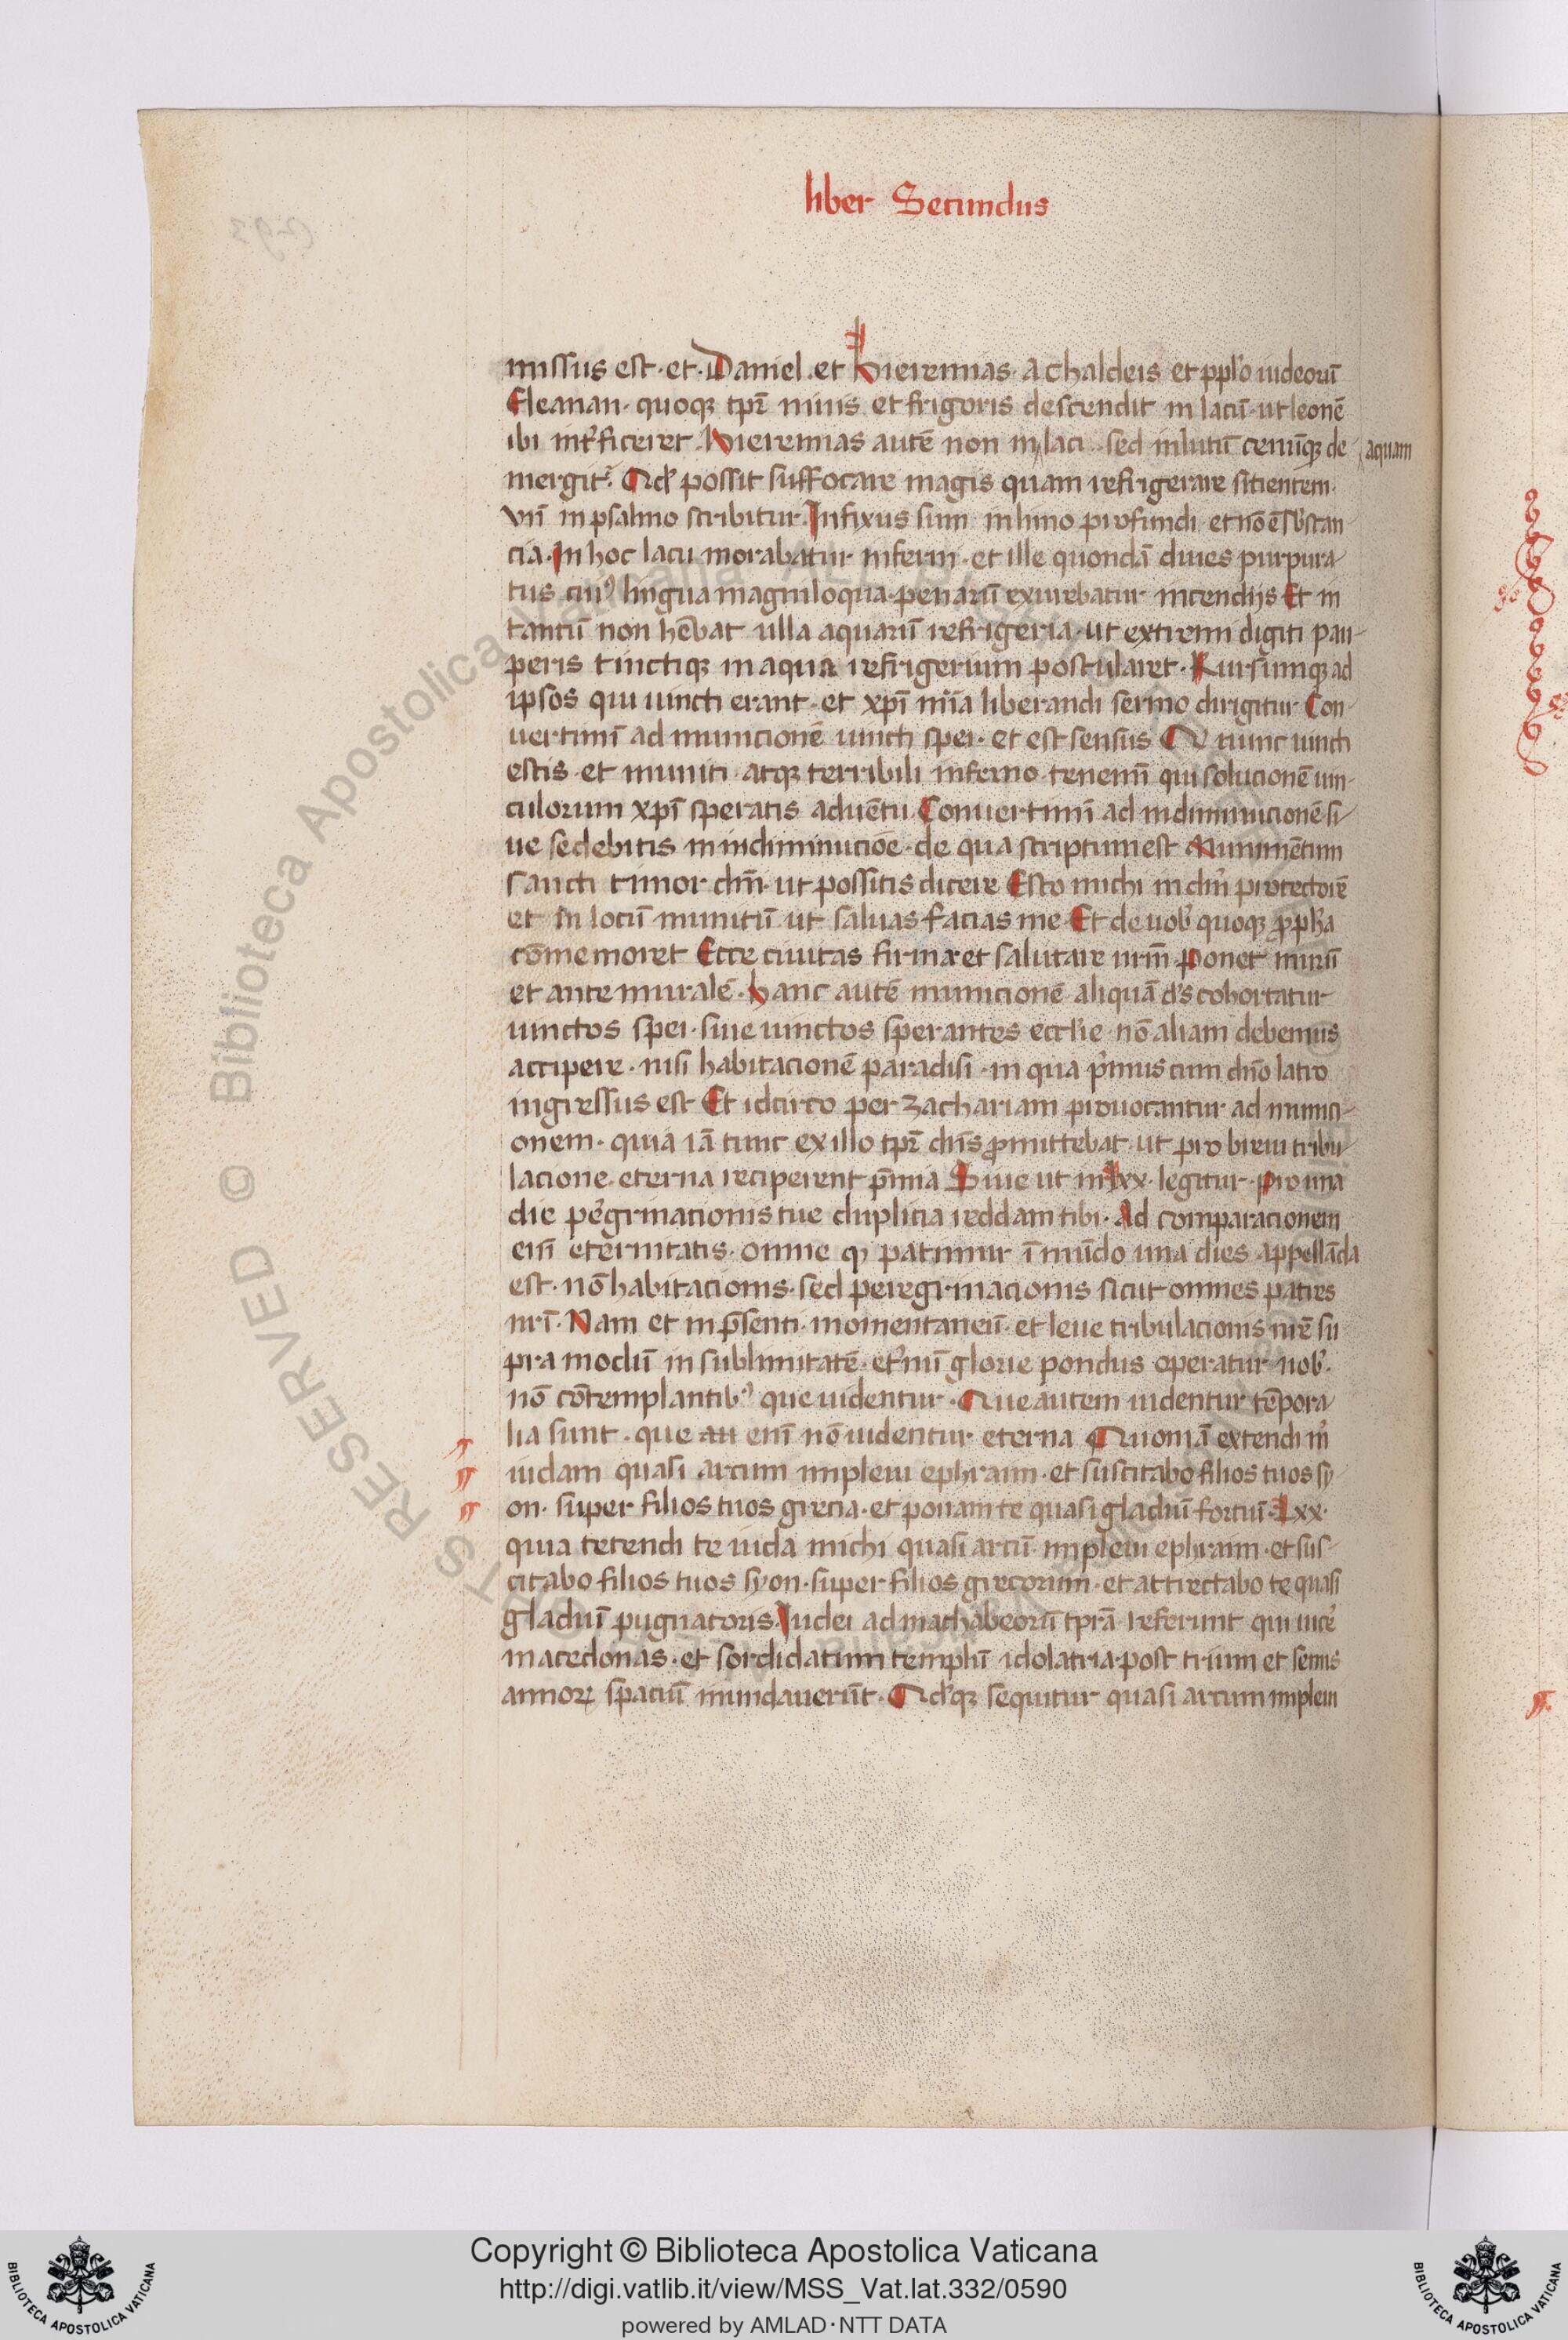 liber Secundus
missus est · et · Daniel · et hieremias · a chaldeis et ppl'o iudeoꝝ̄
Eleanan · quoqꝫ tpr̄ niuis et frigoris descendit in lacū · ut leonē
ibi int'ficeret · hieremias autē non in laci · sed in lutū cenūqꝫ de aquam
mergit᷑ · Qd' possit suffocare magis quam refrigerare sitientem ·
Vn̄ in psalmo scribitur · Infixus sum in limo profundi et nō ē s'bstan
cia · In hoc lacu morabatur inferni · et ille quondā diues purpura
tus cuiꝰ lingua magniloqua · penarū exurebatur incendijs Et in
tantū non hēbat ulla aquarū refrigeria · ut extremi digiti pau
peris tinctiqꝫ in aqua refrigerium postularet · Rursumqꝫ ad
ipsos qui uincti erant · et xp̄i mīa liberandi sermo dirigitur Con
uertimī ad municionē uincti spei · et est sensus Qui nunc uincti
estis · et muniti · atqꝫ terribili inferno tenemī qui solucionē uin
culorum xp̄i speratis aduētu Conuertimī ad indiminucionē · si
ue sedebitis in indiminucioē · de qua scriptum est Munimētum
sancti timor dn̄i · ut possitis dicere Esto michi in dn̄i protectorē
et in locū munitū ut saluas facias me Et de uob' quoqꝫ ꝓph'a
cōmemoret Ecce ciuitas firma et salutare nrm̄ ponet murū
et antemuralē · hanc autē municionē aliquā d's cohortatur
uinctos spei · siue uinctos sperantes eccl'ie nō aliam debemus
accipere · nisi habitacionē paradisi · in qua p'mus cum dn̄o latro
ingressus est Et idcirco per zachariam prouocantur ad munici
onem · quia iā tunc ex illo tpr̄ dn̄s ꝓmittebat ut pro breui tribu
lacione eterna reciperent p̄mia Siue ut in lxx · legitur · pro una
die per'grinacionis tue duplicia reddam tibi · Ad comparacionem
eni eternitatis · omne qꝫ patimur ī mūdo una dies appellāda
est · nō habitacionis · sed peregrinacionis sicut omnes patres
nrī · Nam et in p̄senti · momentaneū et leue tribulacionis nrē su
pra modū in sublimitatē · et'nū glorie pondus operatur nob' ·
nō cōtemplantibꝰ que uidentur · Que autem uidentur tēpora
lia sunt · que au enī nō uidentur eterna Quoniā extendi m'
iudam quasi arcum impleui ephraim · et suscitabo filios tuos sy
on · super filios tuos grecia · et ponam te quasi gladiū fortiū · Lxx ·
quia tetendi te iuda michi quasi arcū impleui ephraim · et sus
citabo filios tuos syon · super filios grecorum · et attrectabo te quasi
gladiū pugnatoris · Iudei ad machabeorū tprā referunt qui uicer'
macedonas · et sordidatum templū idolatria · post trium et semis
annoꝝ spaciū mundauerūt · Qd'qꝫ sequitur quasi arcum impleui
Copyright © Biblioteca Apostolica Vaticana
http://digi.vatlib.it/view/MSS_Vat.lat.332/0590
powered by AMLAD·NTT DATA